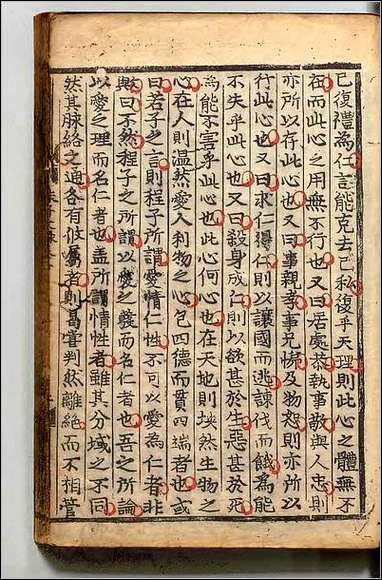 己復禮為仁言能克去己私復乎天理則此心之體無不
在而此心之用無不行也又曰居處恭執事敬與人忠則
亦所以存此心也又曰事親孝事兄悌及物恕則亦所以
行此心也又曰求仁得仁則以讓國而逃諫伐而餓為能
不失乎此心也又曰殺身成仁則以欲甚於生惡甚於死
為能不害乎此心也此心何心也在天地則坱然生物之
心在人則温然愛人利物之心包四德而貫四端者也或
曰若子之言則程子所謂愛情仁性不可以愛為仁者非
歟曰不然程子之所謂以愛之發而名仁者也吾之所論
以愛之理而名仁者也盖所謂情性者雖其分域之不同
然其脉絡之通各有攸屬者則曷嘗判然離絶而不相管